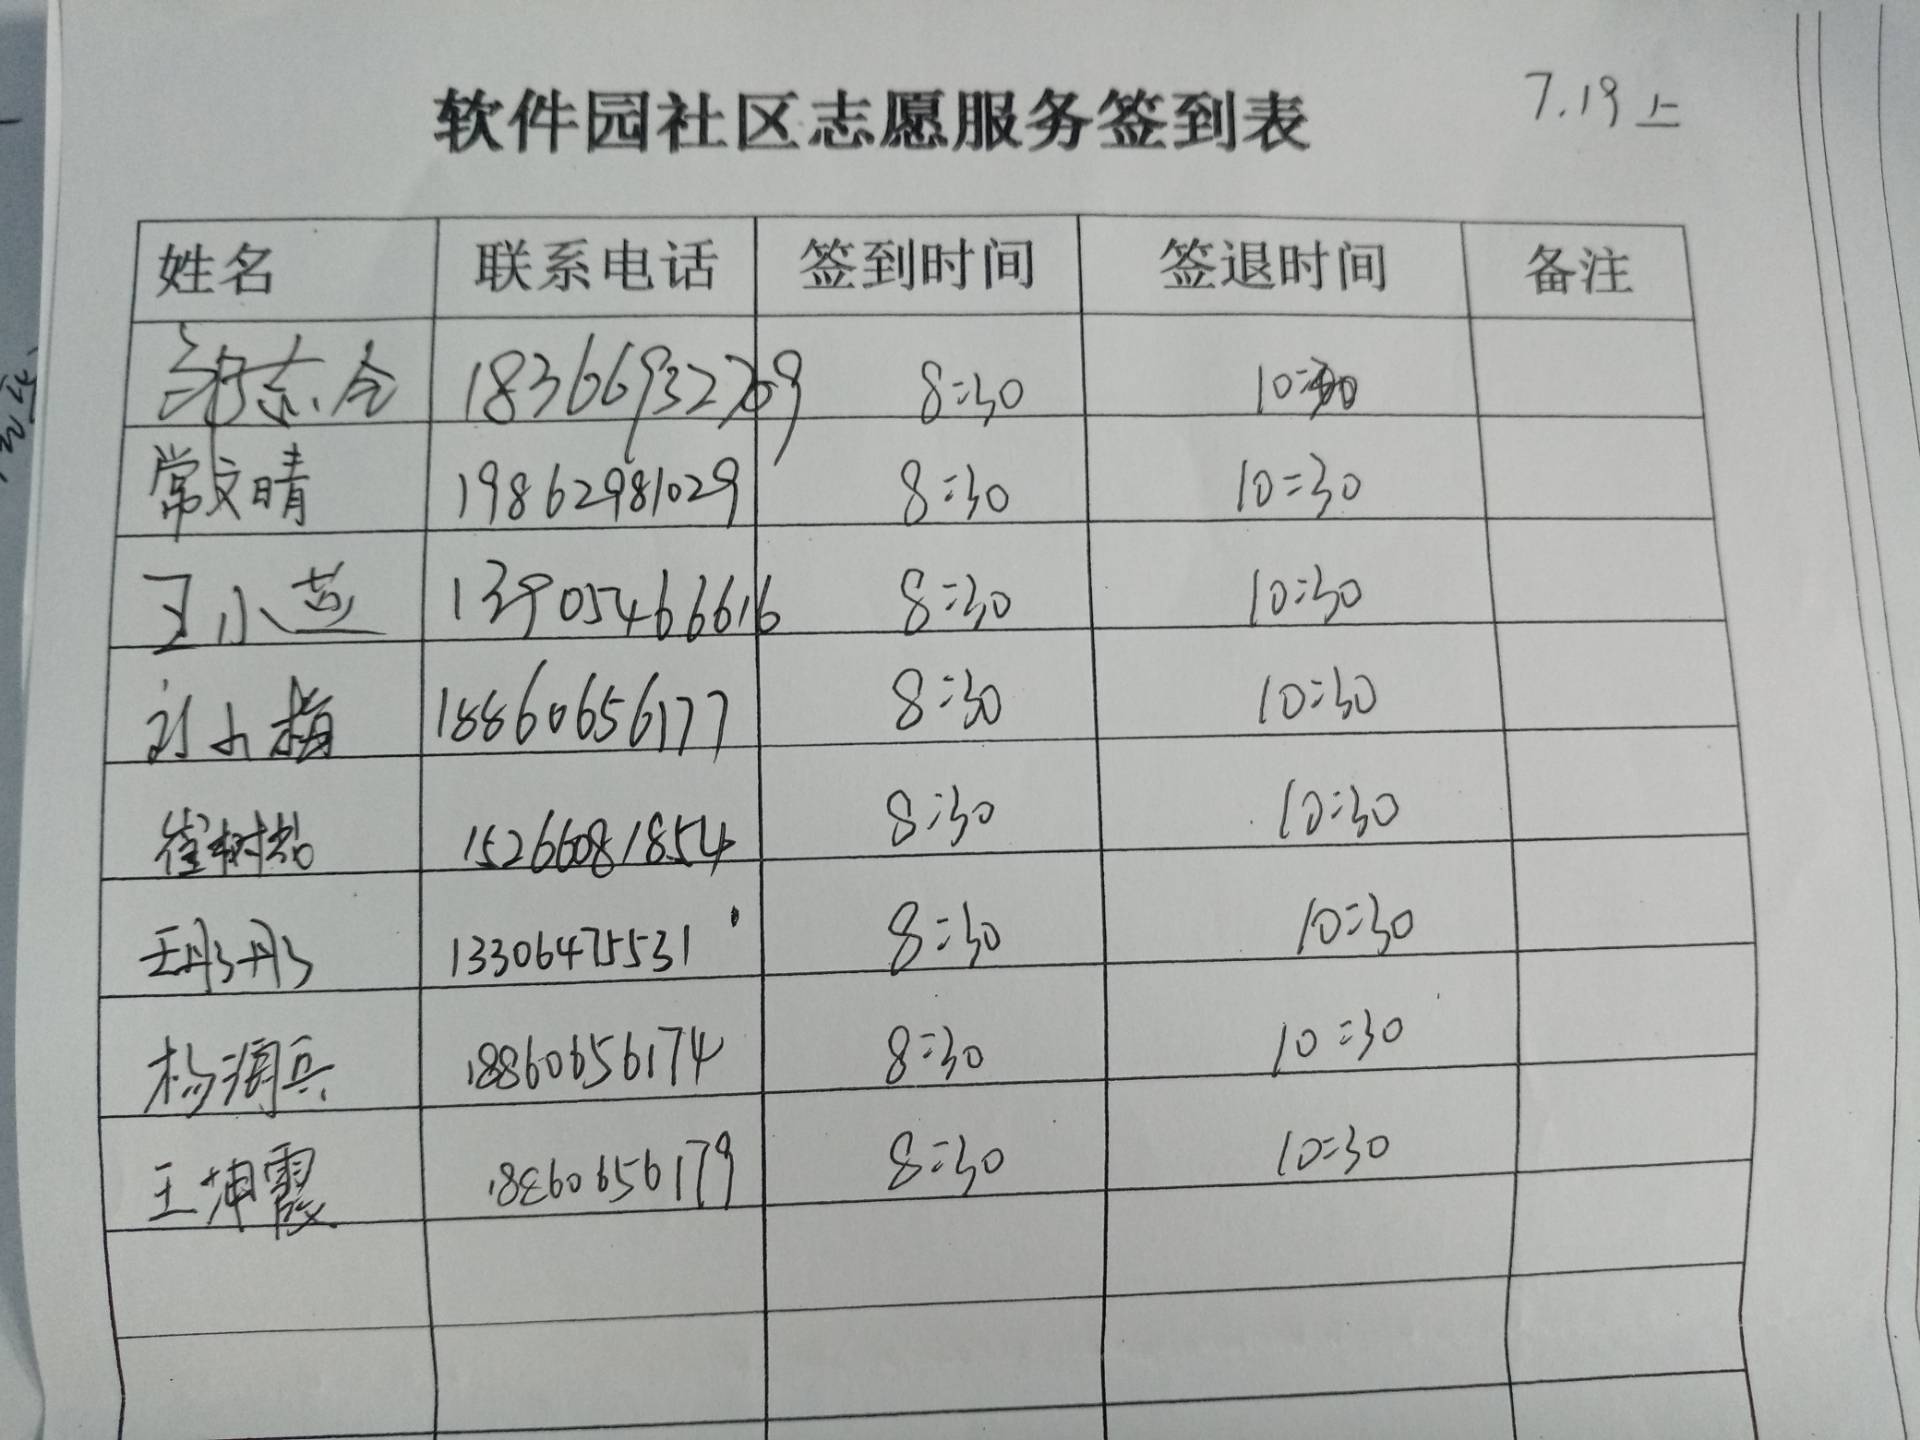 软件园社区志愿服务签到表 7.19上
姓名 联系电话 签到时间 签退时间 备注
志合 18366932769 8:30 10:30
常文晴 19862981029 8:30 10:30
王小燕 13905466616 8:30 10:30
刘小梅 18860656177 8:30 10:30
崔树 15266081854 8:30 10:30
王彤彤 13306475531 8:30 10:30
杨润兵 18860656174 8:30 10:30
王坤霞 18860656179 8:30 10:30